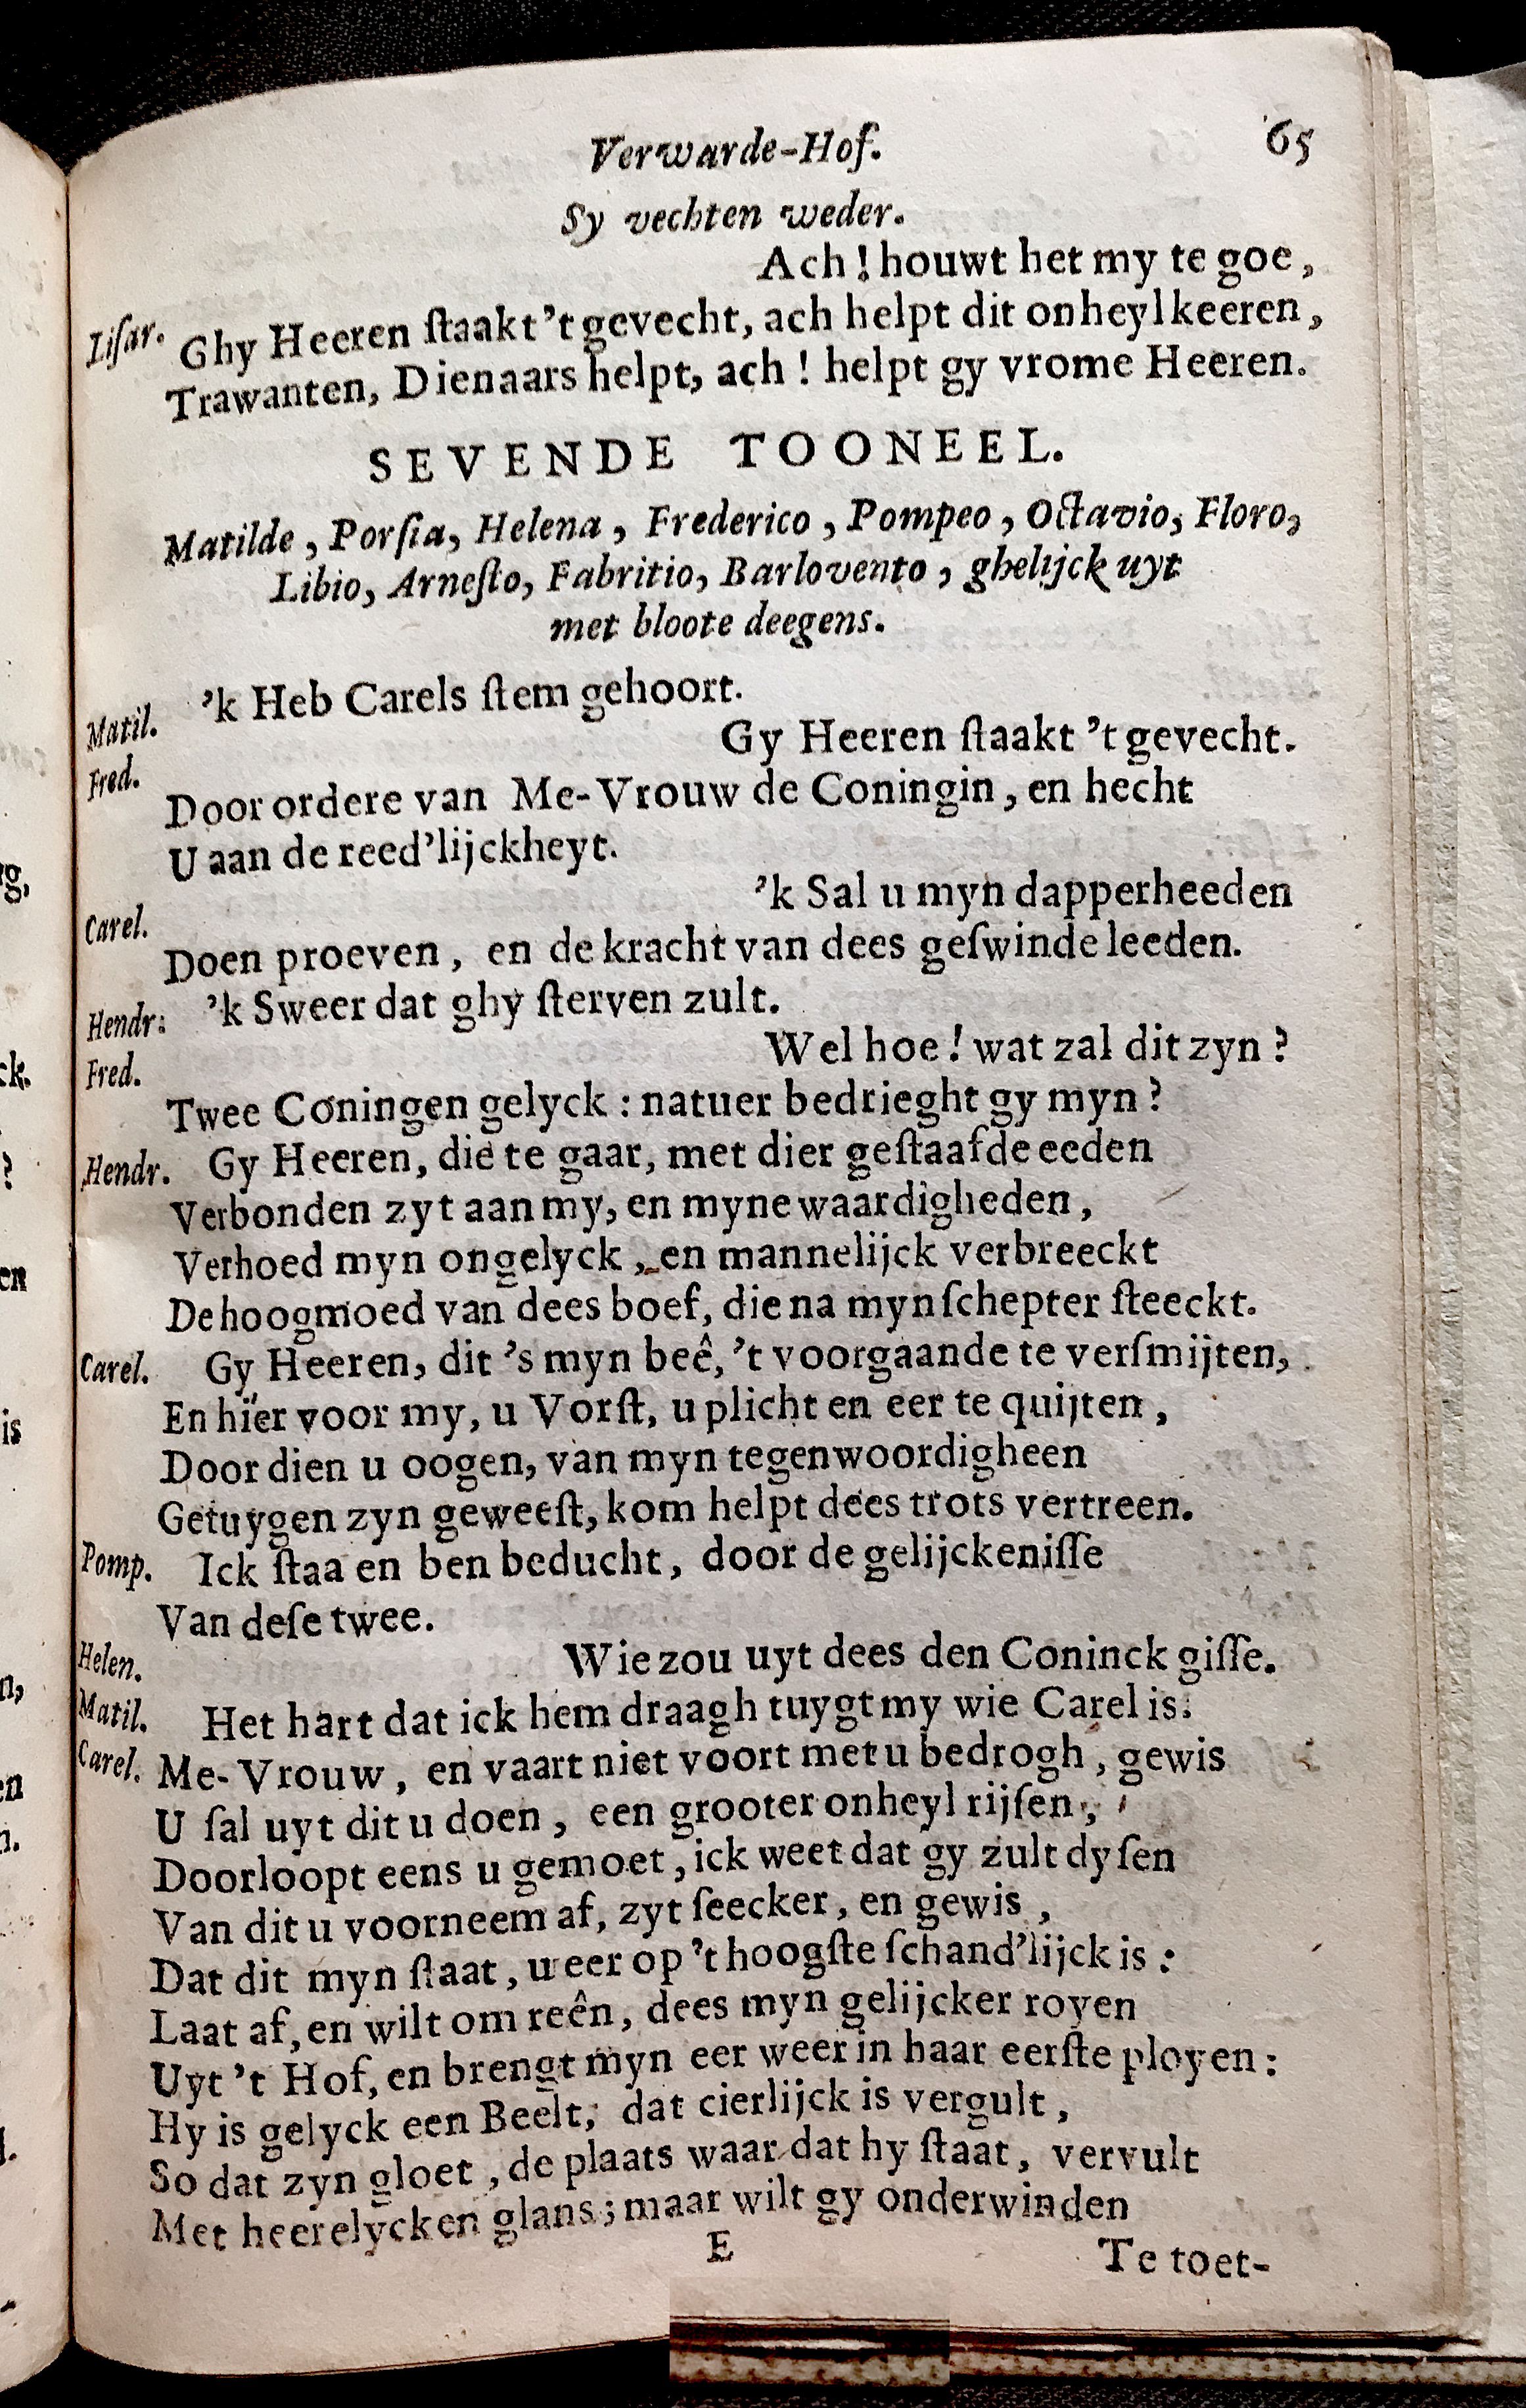 Verwarde-Hof. 65
Sy vechten weder.
Lisar. Ach! houwt het my te goe,
Ghy Heeren ſtaakt 't gevecht, ach helpt dit onheyl keeren,
Trawanten, Dienaars helpt, ach! helpt gy vrome Heeren.
SEVENDE TOONEEL.
Matilde, Porſia, Helena, Frederico, Pompeo, Octavio, Floro,
Libio, Arneſto, Fabritio, Barlovento, ghelijck uyt
met bloote deegens.
Matil. 'k Heb Carels ſtem gehoort.
Fred. Gy Heeren ſtaakt 't gevecht.
Door ordere van Me-Vrouw de Coningin, en hecht
U aan de reed'lijckheyt.
Carel. 'k Sal u myn dapperheeden
Doen proeven, en de kracht van dees geſwinde leeden.
Hendr: 'k Sweer dat ghy ſterven zult.
Fred. Wel hoe! wat zal dit zyn?
Twee Coningen gelyck: natuer bedrieght gy myn?
Hendr. Gy Heeren, die te gaar, met dier geſtaafde eeden
Verbonden zyt aan my, en myne waardigheden,
Verhoed myn ongelyck, en mannelijck verbreeckt
De hoogmoed van dees boef, die na myn ſchepter ſteeckt.
Carel. Gy Heeren, dit 's myn beê, 't voorgaande te verſmijten,
En hier voor my, u Vorſt, u plicht en eer te quijten,
Door dien u oogen, van myn tegenwoordigheen
Getuygen zyn geweeſt, kom helpt dees trots vertreen.
Pomp. Ick ſtaa en ben beducht, door de gelijckeniſſe
Van deſe twee.
Helen. Wie zou uyt dees den Coninck giſſe.
Matil. Het hart dat ick hem draagh tuygt my wie Carel is.
Carel. Me-Vrouw, en vaart niet voort met u bedrogh, gewis
U ſal uyt dit u doen, een grooter onheyl rijſen,
Doorloopt eens u gemoet, ick weet dat gy zult dyſen
Van dit u voorneem af, zyt ſeecker, en gewis,
Dat dit myn ſtaat, u eer op 't hoogſte ſchand'lijck is:
Laat af, en wilt om reên, dees myn gelijcker royen
Uyt 't Hof, en brengt myn eer weer in haar eerſte ployen:
Hy is gelyck een Beelt, dat cierlijck is vergult,
So dat zyn gloet, de plaats waar dat hy ſtaat, vervult
Met heerelycken glans; maar wilt gy onderwinden
E Te toet-